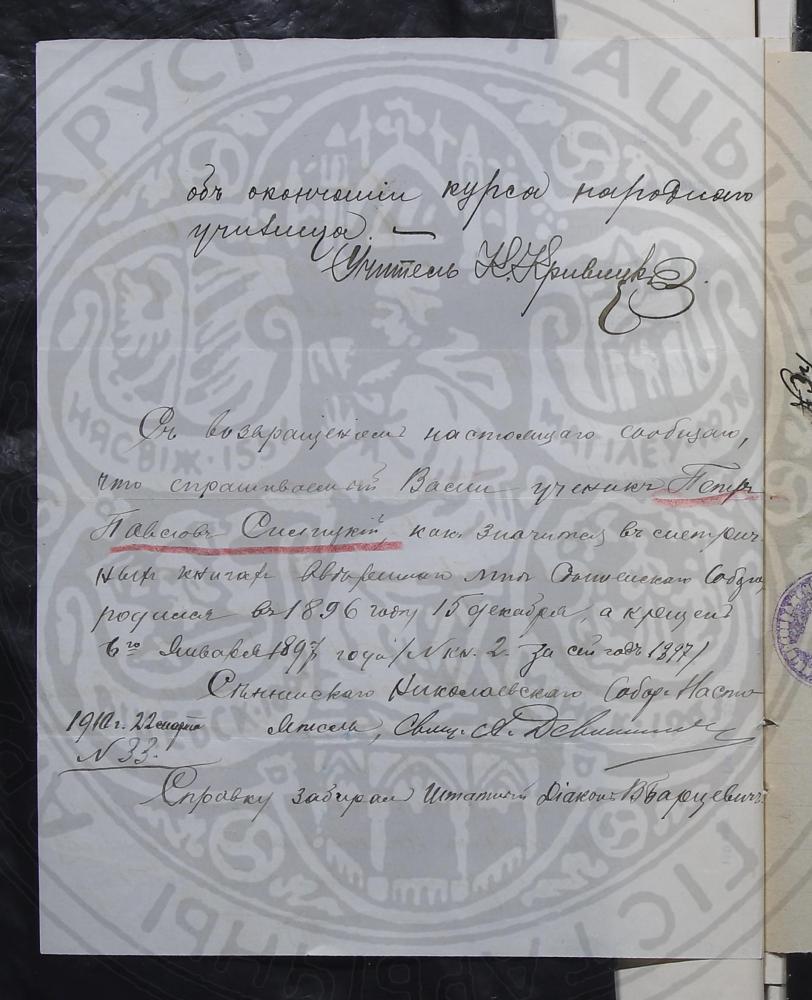 объ окончаніи курса народнаго
училища. —
Учитель К. Кривицкій.
Съ возвращеніемъ настоящаго сообщаю,
что спрашиваемый Вами ученикъ Петръ
Павловъ Силицкій, какъ значится въ метрич
ныхъ книгахъ ввѣренной мнѣ Собора,
родился въ 1896 году 15 декабря, а крещенъ
6го Января 1897 года /N кн. 2. за сей годъ 1897/
Николаевскаго Собор. Насто
1910 г. 22 марта ятель, Свящ. А.
N 33.
Справку забиралъ Штатный Діаконъ